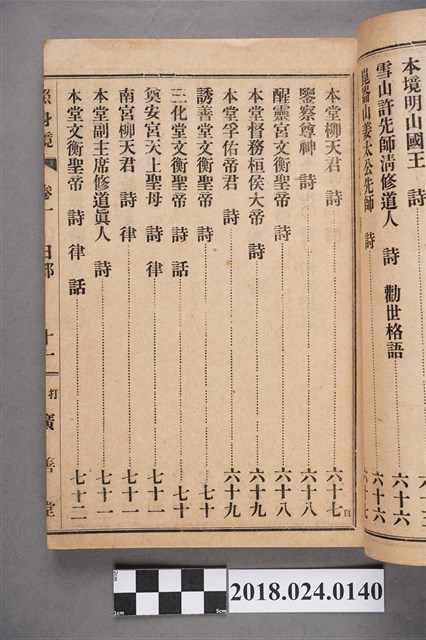 本境明山國王 詩 六十六
雪山許先師清修道人 詩 勸世格語 六十六
崑崙山姜太公先師 詩 六十七
本堂柳天君 詩 六十七頁
鑒察尊神 詩 六十八
醒靈宮文衡聖帝 詩 六十八
本堂督務桓侯大帝 詩 六十九
本堂孚佑帝君 詩 六十九
誘善堂文衡聖帝 詩 七十
三化堂文衡聖帝 詩 話 七十
奠安宮天上聖母 詩 律 七十一
南宮柳天君 詩 律 七十一
本堂副主席修道眞人 詩 七十一
本堂文衡聖帝 詩 律 話 七十二
照身鏡 卷一 日部 十一 打 廣善堂
2cm
1cm
5cm
2018.024.0140